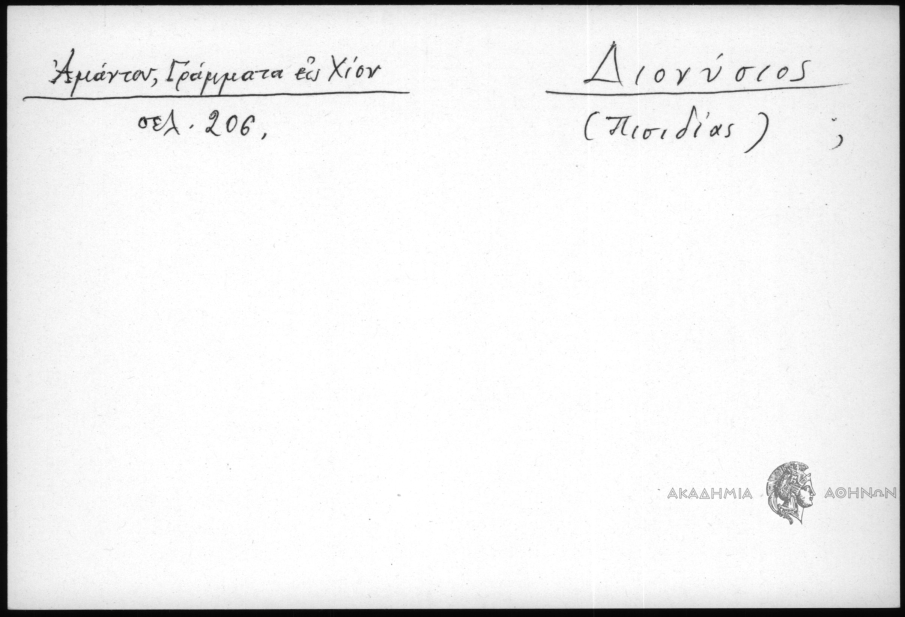 Ἀμάντου, Γράμματα εἰς Χίον
σελ. 206,
Διονύσιος
(Πισιδίας) ;
ΑΚΑΔΗΜΙΑ ΑΘΗΝΩΝ